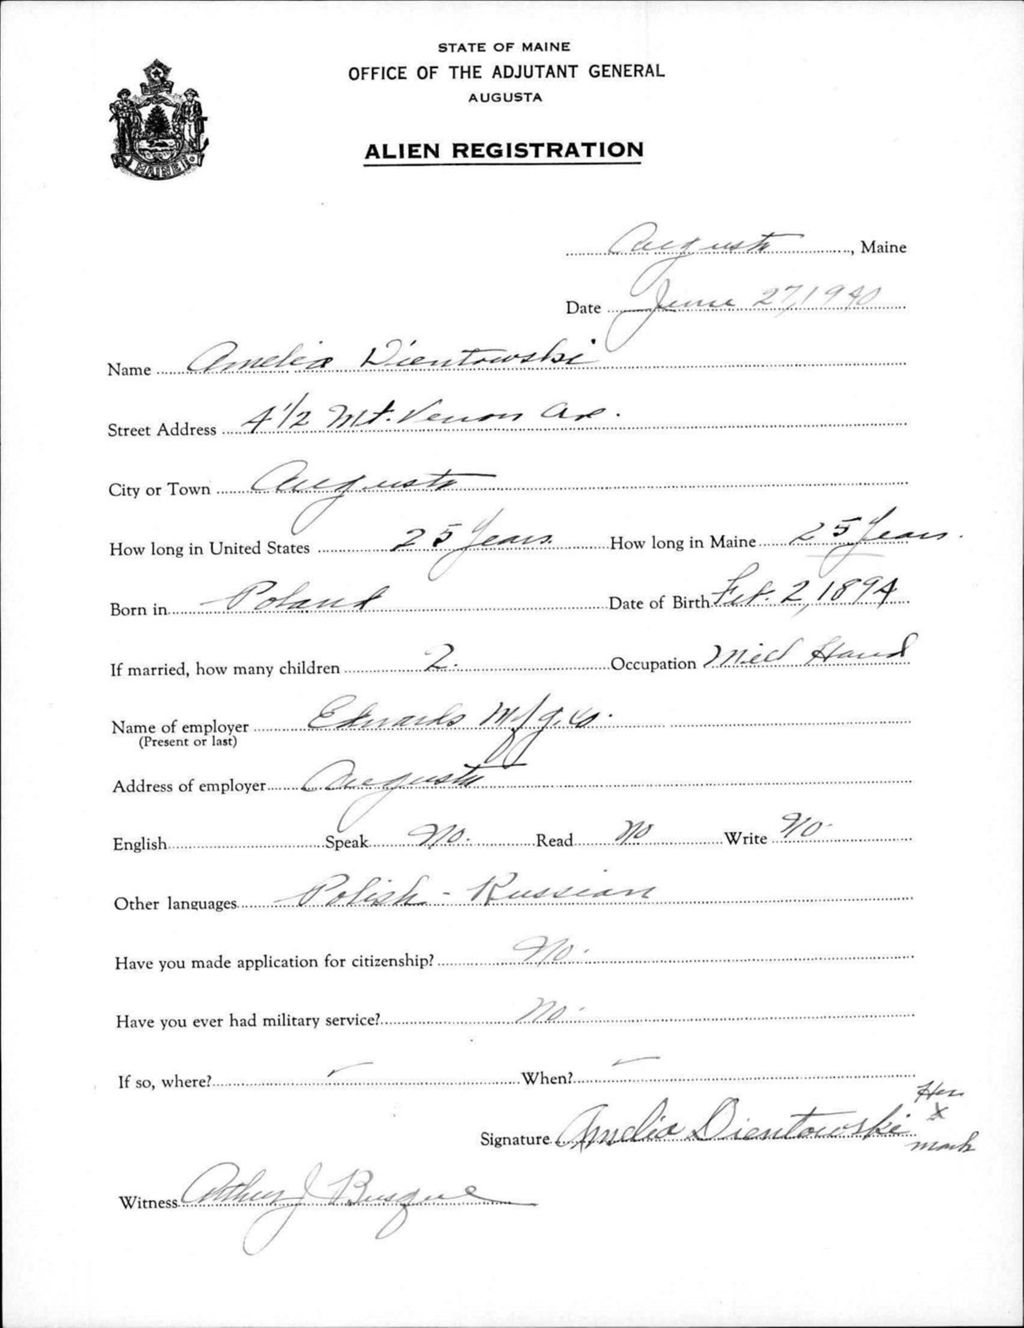 STATE OF MAINE
OFFICE OF THE ADJUTANT GENERAL
AUGUSTA
ALIEN REGISTRATION
MAINE
Augusta, Maine
Date June 27, 1940
Name Amelia Dientowski
Street Address 4 1/2 Mt. Vernon Ave.
City or Town Augusta
How long in United States 25 Years. How long in Maine 25 Years.
Born in Poland Date of Birth Feb. 2, 1894
If married, how many children 2. Occupation Mill Hand
Name of employer Edwards Mfg. Co.
(Present or last)
Address of employer Augusta
English Speak No. Read No Write No.
Other languages Polish - Russian
Have you made application for citizenship? No.
Have you ever had military service? No.
If so, where? - When? -
Her
Signature Amelia Dientowski X
mark
Witness Arthur J Busque